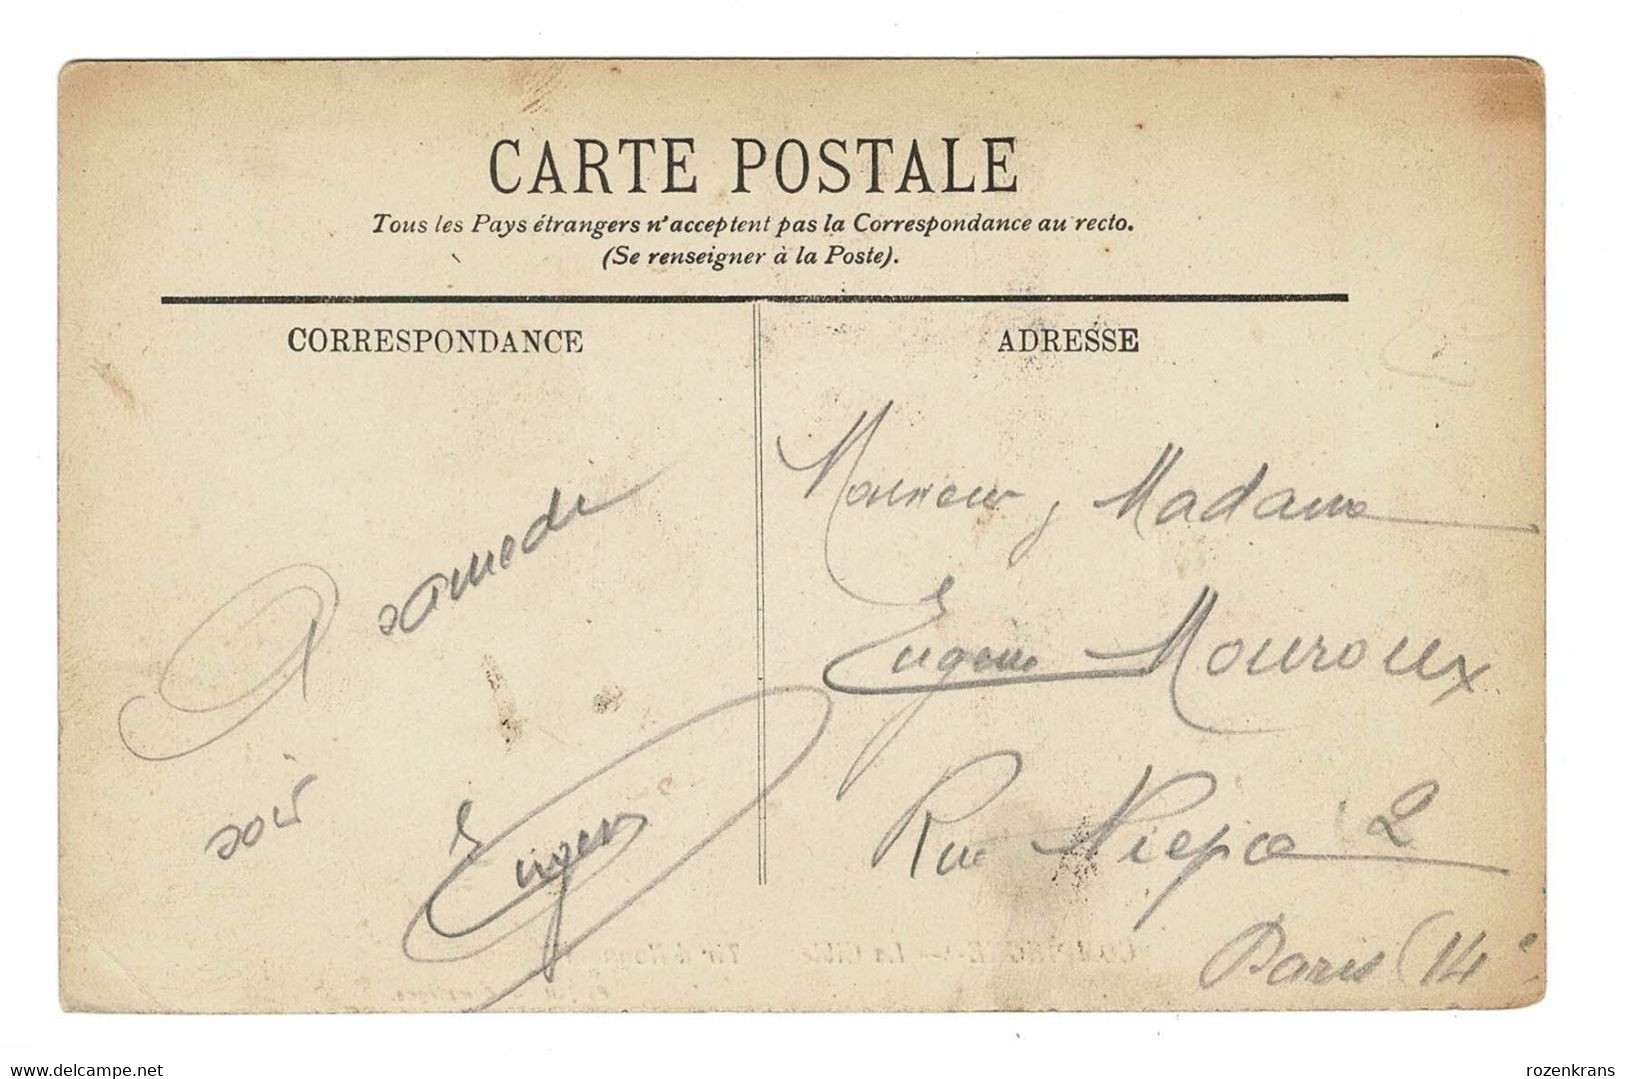 CARTE POSTALE
Tous les Pays étrangers n'acceptent pas la Correspondance au recto.
(Se renseigner à la Poste).
CORRESPONDANCE
A samedi
soir
Eugène
ADRESSE
Monsieur, Madame
Eugène Mouroux
Rue Niepce 2
Paris (14e
www.delcampe.net
rozenkrans